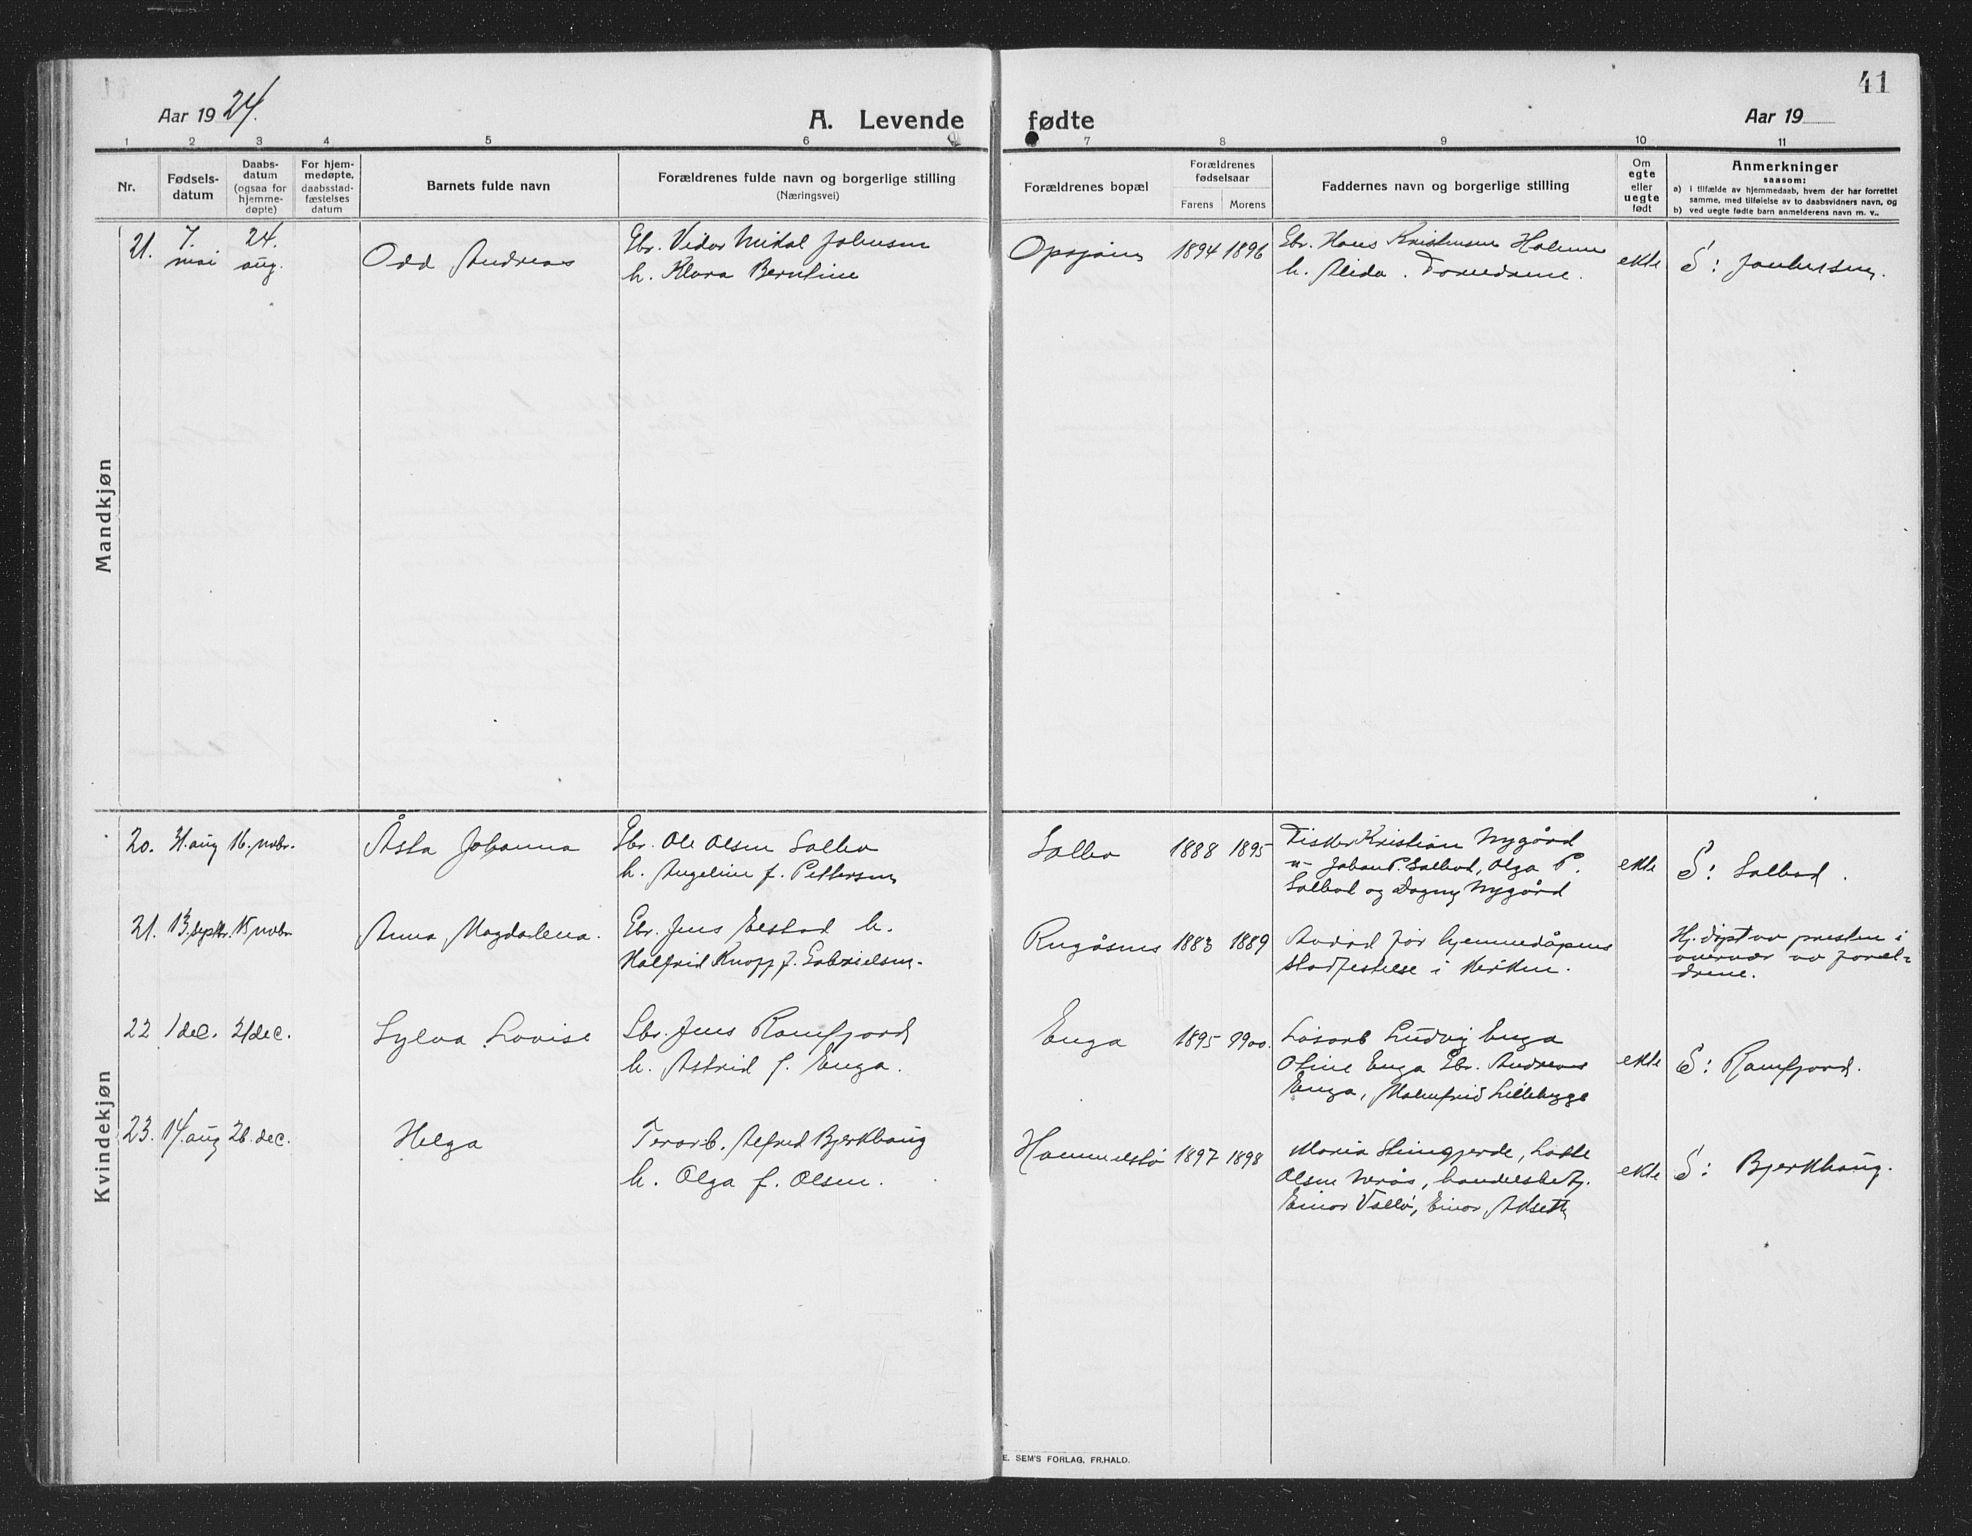 Aar 1924.
A. Levende fødte
Aar 19
41
1 2 3 4 5 6 7 8 9 10 11
Nr.
Fødsels-
datum
Daabs-
datum
(ogsaa for
hjemme-
døpte)
For hjem-
medøpte,
daabsstad-
fæstelses
datum
Barnets fulde navn
Forældrenes fulde navn og borgerlige stilling
(Næringsvei)
Forældrenes bopæl
Forældrenes
fødselsaar
Farens Morens
Faddernes navn og borgerlige stilling
Om
egte
eller
uegte
født
Anmerkninger
saasom:
a) i tilfælde av hjemmedaab, hvem der har forrettet
samme, med tilføielse av to daabsvidners navn, og
b) ved uegte fødte barn anmelderens navn m. v..
Mandkjøn
21.
7.
mai
24.
aug.
Odd Andreas
Gbr. Vidar Johnsen
h. Klara Berntine
1894 1896
Gbr. Hans Kristensen
h. Alida.
ekte
S:
Kvindekjøn
20. 31. aug 16. novbr.
Åsta Johanna
Gbr. Ole Olsen Salbu
h. Angelin f. Pettersen
1888 1895
Fisker Kristian Nygård
Johan P. Salbod, Olga P.
Salbod og Dagny Nygård
ekte
S: Salbod.
21. 13. septbr. 15 novbr
Anna Magdalena.
Gbr. Jens h.
Halfrid Knopp f. Gabrielsen.
1883 1889
for hjemmedåpens
stadfestelse i kirken.
Hj. døpt av presten i
overvær av forel-
drene.
22 1 dec. 21 dec.
Sylva Lovise
Gbr. Jens Ramfjord
h. Astrid f. Enga.
Enga
1895 1900.
Løsarb Ludvig Enga
Oline Enga Gbr. Andreas
Enga, Malmfrid Lillebygge
ekte
S: Ramfjord.
23. 14. aug 26. dec.
Helga
Alfred Bjerkhaug
h. Olga f. Olsen.
Hammelstø
1897 1898
Maria Steingjerde, Lotte
Olsen Nerås, handelsbetj.
Einar Vallø, Einar
ekte
S: Bjerkhaug.
E. SEM'S FORLAG, FR.HALD.